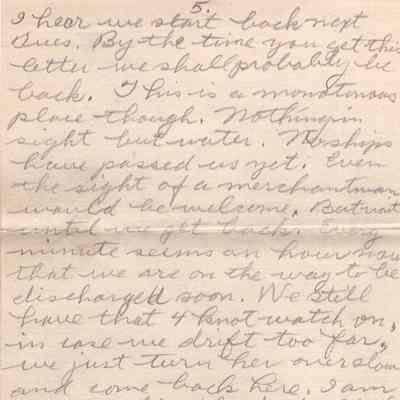 5.
I hear we start back next
Tues. By the time you get this
letter we shall probably be
back. This is a monotonous
place though. Nothing in
sight but water. No ships
have passed us yet. Even
the sight of a merchantman
would be welcome. But wait
until we get back. Every
minute seems an hour now
that we are on the way to be
discharged soon. We still
have that 4 knot watch on,
in case we drift too far,
we just turn her over slow
and come back here. I am